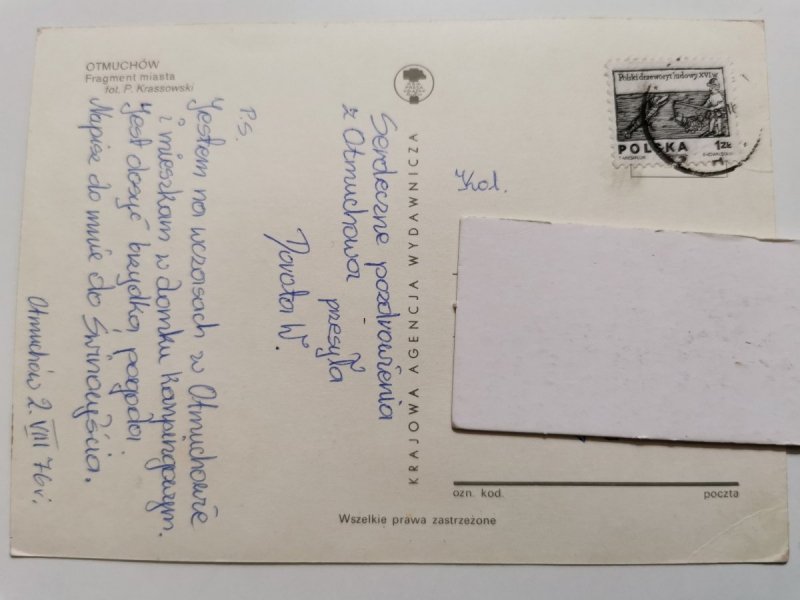 OTMUCHÓW
Fragment miasta
fot. P. Krassowski
Serdeczne pozdrowienia
z Otmuchowa przesyła
Dorota W.
P.S.
Jestem na wczasach w Otmuchowie
i mieszkam w domku kampingowym.
Jest dosyć brzydka pogoda
Napisz do mnie do Świnoujścia.
Otmuchów 2. VIII 76 r.
KRAJOWA AGENCJA WYDAWNICZA
Polski drzeworyt ludowy XVI w
POLSKA 1ZŁ
Kol.
ozn. kod. poczta
Wszelkie prawa zastrzeżone